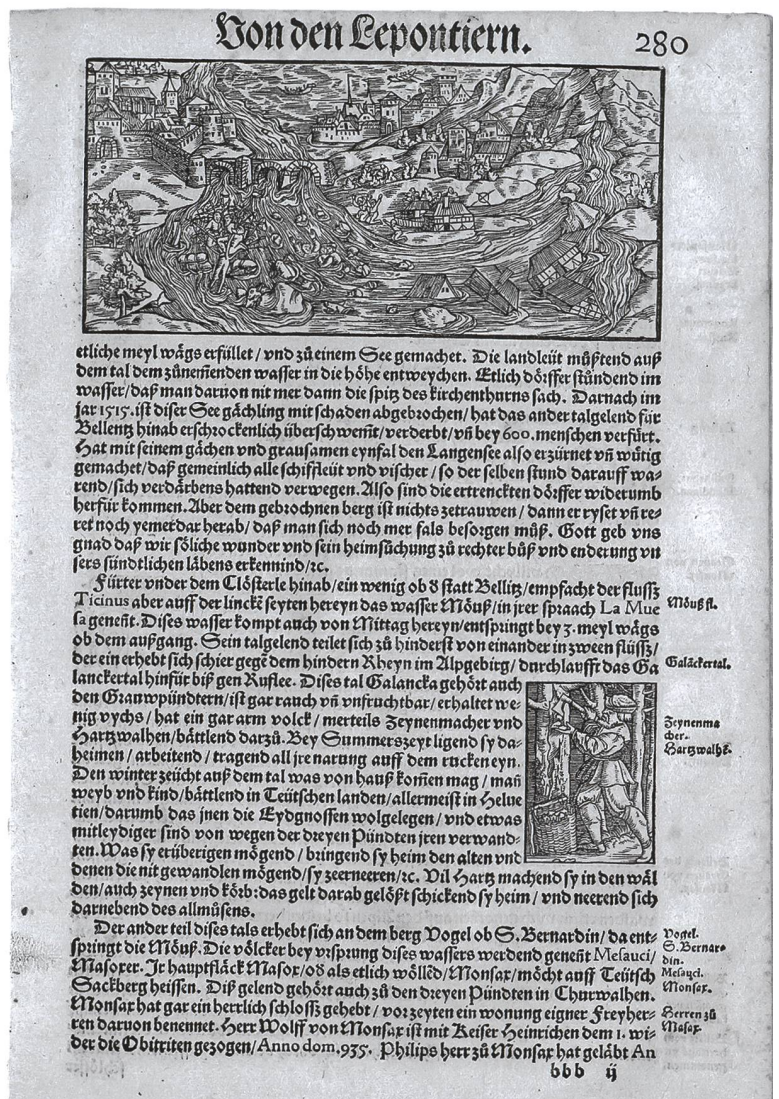 Von den Lepontiern. 280
etliche meyl wägs erfüllet / vnd zů einem See gemachet. Die landleüt můßtend auß
dem tal dem zůnem̃enden wasser in die höhe entweychen. Etlich dörffer stůndend im
wasser / daß man daruon nit mer dann die spitz des kirchenthurns sach. Darnach im
jar 1515. ist diser See gächling mit schaden abgebrochen / hat das ander talgelend für
Bellentz hinab erschrockenlich überschwem̃t / verderbt / vñ bey 600. menschen verfürt.
Hat mit seinem gächen vnd grausamen eynfal den Langensee also erzürnet vñ wütig
gemachet / daß gemeinlich alle schiffleüt vnd vischer / so der selben stund darauff wa-
rend / sich verdärbens hattend verwegen. Also sind die ertrenckten dörffer widerumb
herfür kommen. Aber dem gebrochnen berg ist nichts zetrauwen / dann er ryset vñ re-
ret noch yemerdar herab / daß man sich noch mer fals besorgen můß. Gott geb vns
gnad daß wir söliche wunder vnd sein heimsůchung zů rechter bůß vnd enderung vn
sers sündtlichen läbens erkennind / ꝛc.
Fürter vnder dem Clösterle hinab / ein wenig ob d̕ statt Bellitz / empfacht der flussz
Ticinus aber auff der linckẽ seyten hereyn das wasser Möuß / in jrer spraach La Mue
sa geneñt. Dises wasser kompt auch von Mittag hereyn / entspringt bey 3. meyl wägs
ob dem außgang. Sein talgelend teilet sich zů hinderst von einander in zween flüssz /
der ein erhebt sich schier gegẽ dem hindern Rheyn im Alpgebirg / durchlaufft das Ga
lanckertal hinfür biß gen Ruflee. Dises tal Galancka gehört auch
den Grauwpündtern / ist gar rauch vñ vnfruchtbar / erhaltet we-
nig vychs / hat ein gar arm volck / merteils Zeynenmacher vnd
Hartzwalhen / bättlend darzů. Bey Summerszeyt ligend sy da-
heimen / arbeitend / tragend all jre narung auff dem rucken eyn.
Den winter zeücht auß dem tal was von hauß kom̃en mag / mañ
weyb vnd kind / bättlend in Teütschen landen / allermeist in Helue
tien / darumb das jnen die Eydgnossen wolgelegen / vnd etwas
mitleydiger sind von wegen der dreyen Pündten jren verwand-
ten. Was sy erüberigen mögend / bringend sy heim den alten vnd
denen die nit gewandlen mögend / sy zeerneeren / ꝛc. Vil Hartz machend sy in den wäl
den / auch zeynen vnd körb: das gelt darab gelößt schickend sy heim / vnd neerend sich
darnebend des allmůsens.
Der ander teil dises tals erhebt sich an dem berg Vogel ob S. Bernardin / da ent-
springt die Möuß. Die völcker bey vrsprung dises wassers werdend geneñt Mesauci /
Masoxer. Jr hauptfläck Masox / od̕ als etlich wöllẽd / Monsax / möcht auff Teütsch
Sackberg heissen. Diß gelend gehört auch zů den dreyen Pündten in Churwalhen.
Monsax hat gar ein herrlich schlossz gehebt / vor zeyten ein wonung eigner Freyher-
ren daruon benennet. Herr Wolff von Monsax ist mit Keiser Heinrichen dem 1. wi-
der die Obitriten gezogen / Anno dom. 935. Philips herr zů Monsax hat geläbt An
bbb ij
Möuß fl.
Galãckertal.
Zeynenma
cher.
Hartzwalhẽ.
Vogel.
S. Bernar-
din.
Mesauci.
Monsax.
Herren zů
Masax